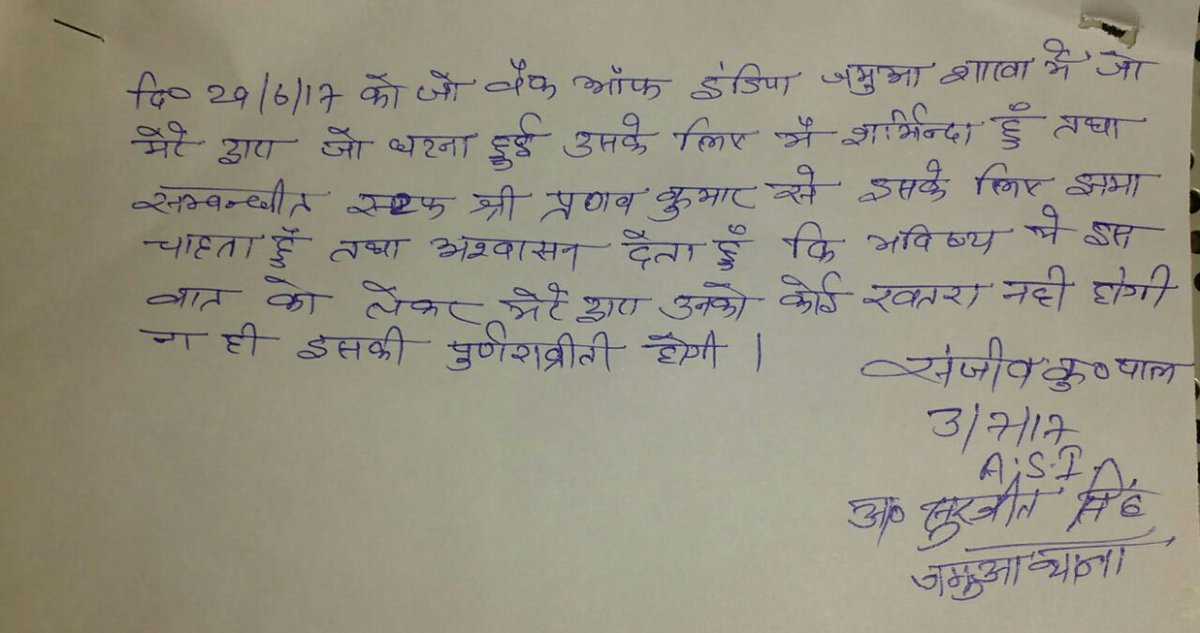 दि० 29/6/17 को जो बैंक ऑफ इंडिया जमुआ शाखा में जो
मेरे द्वारा जो घटना हुई उसके लिए मैं शर्मिन्दा हूँ तथा
सम्बन्धीत स्टाफ श्री प्रणव कुमार से इसके लिए क्षमा
चाहता हूँ तथा अश्वासन देता हूँ कि भविष्य मे इस
बात को लेकर मेरे द्वारा उनको कोई खतरा नही होगी
न ही इसकी पुर्णरावीती होगी ।
संजीव कु० पाल
3/7/17
A.S.I.
सुरजीत सिंह
जमुआ थाना